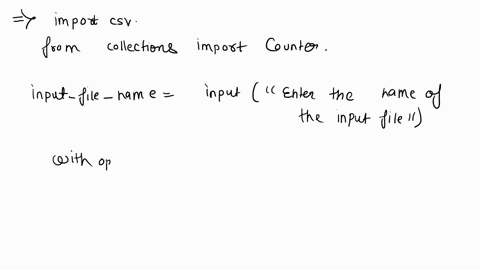 => import csv.
from collections import Counter.
input_file_name = input ("Enter the name of
the input file")
with op